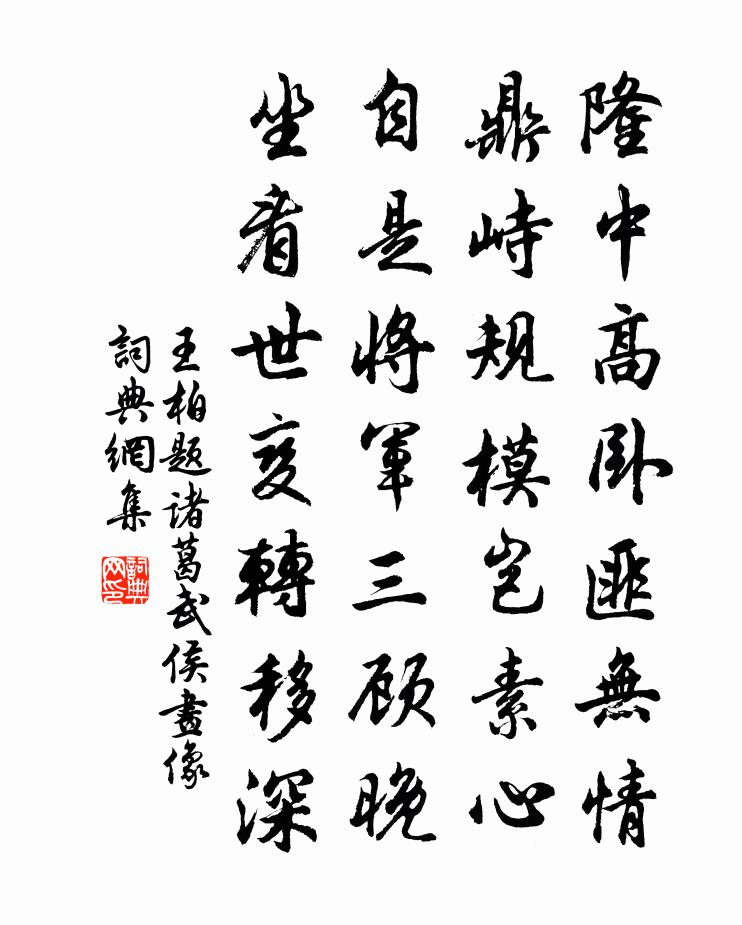 隆中高卧匪無情
鼎峙規模豈素心
自是將軍三顾晚
坐看世变轉移深
王柏題诸葛武侯畫像
詞典網集
詞典网印